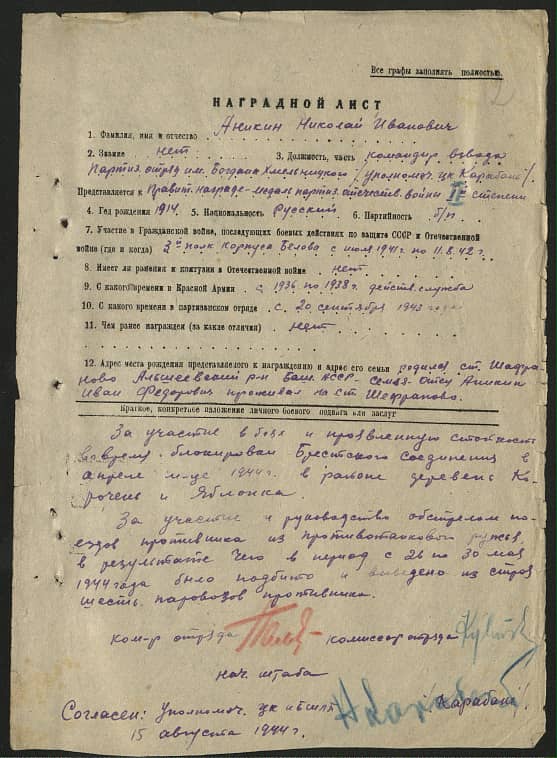 Все графы заполнять полностью.
2
НАГРАДНОЙ ЛИСТ
1. Фамилия, имя и отчество Аникин Николай Иванович
2. Звание нет 3. Должность, часть командир взвода
Партиз. отряд им. Богдана Хмельницкого /уполномоч. цк Карабань/
Представляется к Правит. награде - медаль партиз. отечеств. войны II степени
4. Год рождения 1914. 5. Национальность Русский 6. Партийность б/п
7. Участие в Гражданской войне, последующих боевых действиях по защите СССР и Отечественной
войне (где и когда) 3й полк Корпуса Белова с июля 1941 г по 11.8.42 г.
8. Имеет ли ранения и контузии в Отечественной войне нет
9. С какого времени в Красной Армии с 1936 по 1938 г. действ. служба
10. С какого времени в партизанском отряде с 20 сентября 1943 года
11. Чем ранее награжден (за какие отличия) нет
12. Адрес места рождения представляемого к награждению и адрес его семьи родился ст. Шафра-
ново Альшеевский р-н Баш. АССР - семья - отец Аникин
Иван Федорович проживал на ст. Шефраново.
Краткое, конкретное изложение личного боевого подвига или заслуг
За участие в боях и проявленную стойкость
во время блокировки Брестского Соединения в
апреле м-це 1944 г. в районе деревень Ко-
рочень и Яблонка.
За участие и руководство обстрелом по-
ездов противника из противотанкового ружья,
в результате чего в период с 26 по 30 мая
1944 года было подбито и выведено из строя
шесть паровозов противника.
ком-р отряда комиссар отряда
нач. штаба
Согласен: Уполномоч. цк и бшпд /Карабань/
15 августа 1944 г.